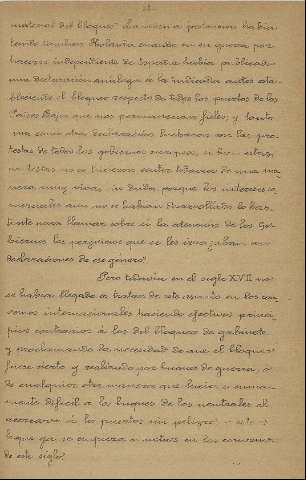 material del bloqueo. La misma pretension habia
tenido tambien Holanda cuando en su guerra por
hacerse independiente de España habia publicado
una declaracion analoga a la indicada antes esta-
bleciendo el bloqueo respecto de todos los puertos de los
Paises Bajos que nos permanecian fieles; y tanto
una como otra declaracion hubieron
protestas de todos los gobiernos
no se hicieron
nera muy viva, sin duda porque los intereses
mercantiles aun no se habian desarrollado lo bas-
tante para llamar sobre si la atencion de los Go-
biernos los perjuicios que se les irrogaban con
declaraciones de ese genero.
Pero tambien en el siglo XVII no
se habian llegado a tratar de este asunto en los con-
venios internacionales haciendo efectivos princi-
pios contrarios á los del bloqueo de gabinete,
y proclamando la necesidad de que el bloqueo
fuese cierto y realizado por buques de guerra, ó
de cualquier otra manera que hacia
mente dificil a los buques de los neutrales el
acercarse á los puertos sin peligro: esto
que se empieza a notar en los convenios
de este siglo.